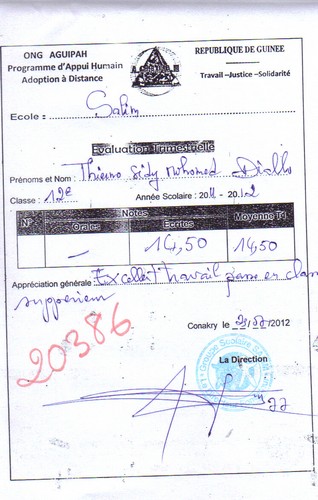 ONG AGUIPAH
Programme d'Appui Humain
Adoption à Distance
REPUBLIQUE DE GUINEE
Travail –Justice –Solidarité
Ecole : Salim
Evaluation Trimestrielle
Prénoms et Nom : Thierno Sidy Mohomed Diallo
Classe : 12e Année Scolaire : 2011 - 2012
N° Notes Moyenne T1
Orales Ecrites
— 14,50 14,50
Appréciation générale : Excellent travail passe en classe
supperieur
20386
Conakry le /2012
La Direction
Groupe Scolaire